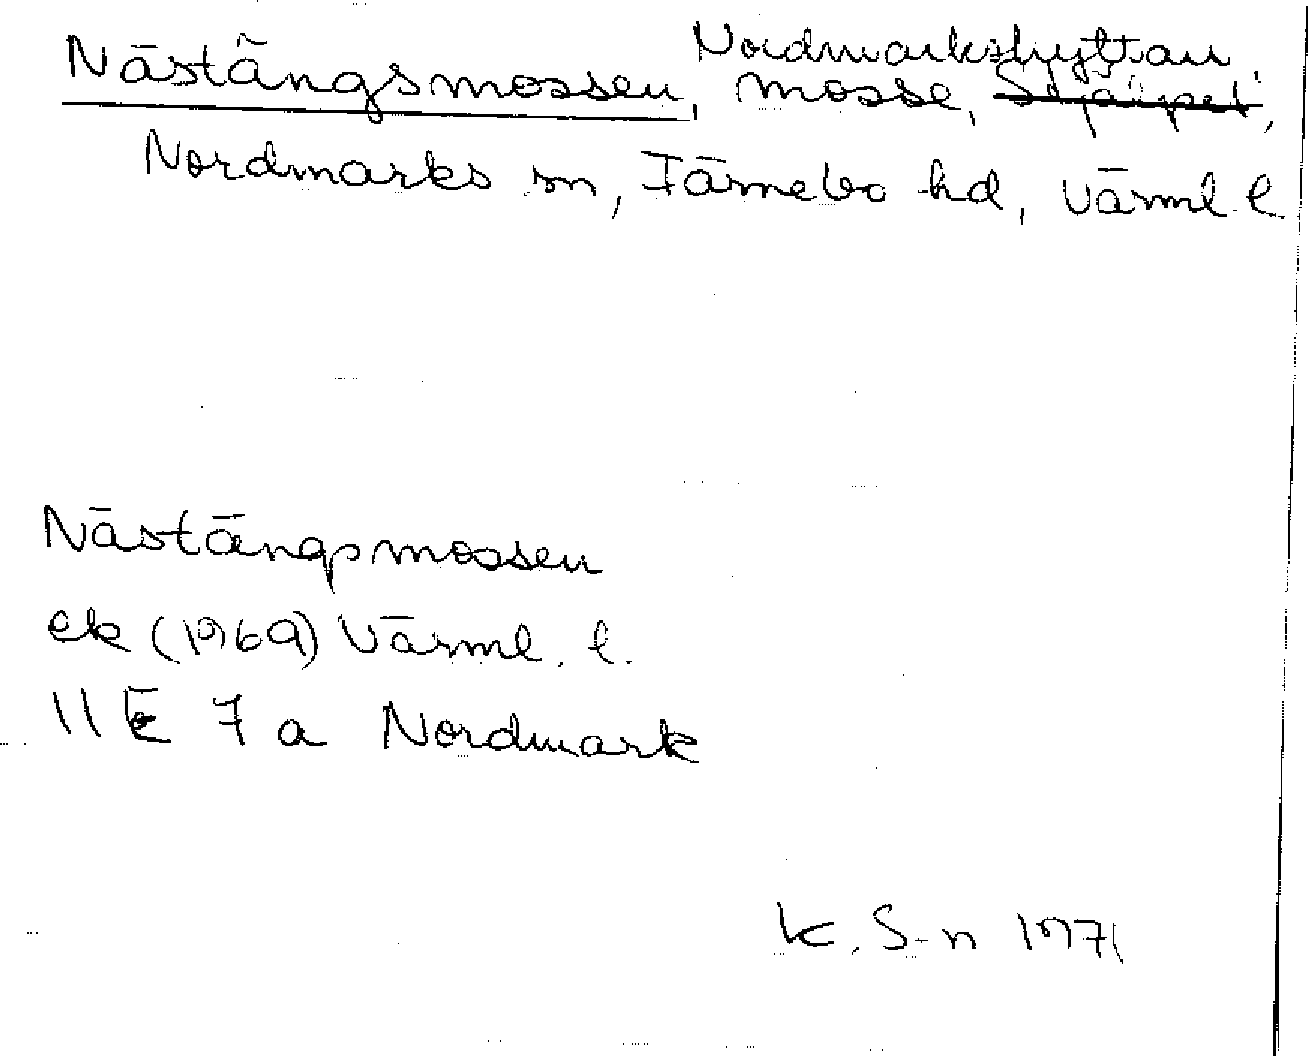 Nordmarkshyttan
Nästängsmossen, mosse,
Nordmarks sn, Färnebo hd, Värml. l.
Nästängsmossen
ek (1969) Värml. l.
11E 7a Nordmark
K. S-n 1971